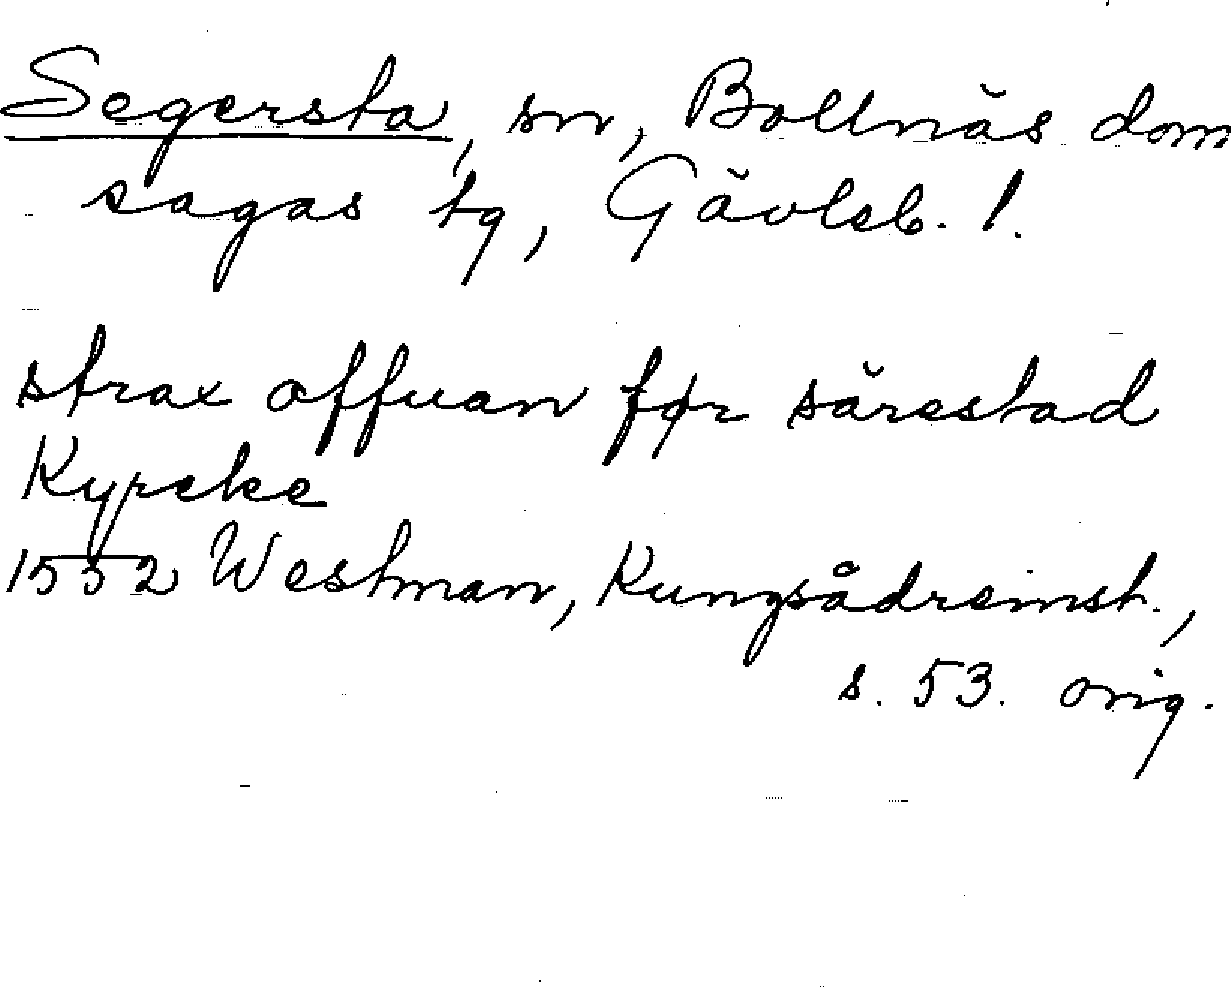 Segersta, sn, Bollnäs dom
sagas tg, Gävleb. l.
strax offuan før särestad
Kyrcke
1552 Westman, Kungsådreinst.,
s. 53. orig.